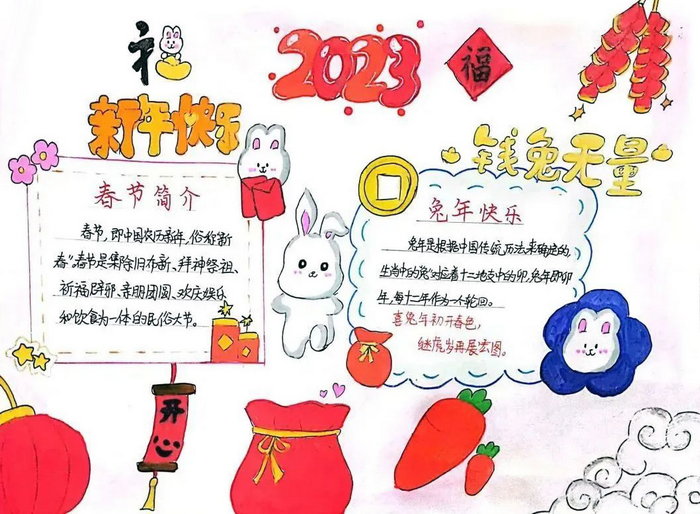 2023
福
新年快乐
钱兔无量
春节简介
春节,即中国农历新年,俗称"新
春"春节是集除旧布新、拜神祭祖、
祈福辟邪、亲朋团圆、欢庆娱乐
和饮食为一体的民俗大节。
兔年快乐
兔年是根据中国传统历法来确定的,
生肖中的"兔"对应着十二地支中的卯,兔年即卯
年,每十二年作为一个轮回。
喜兔年初开春色,
继虎岁再展宏图。
开